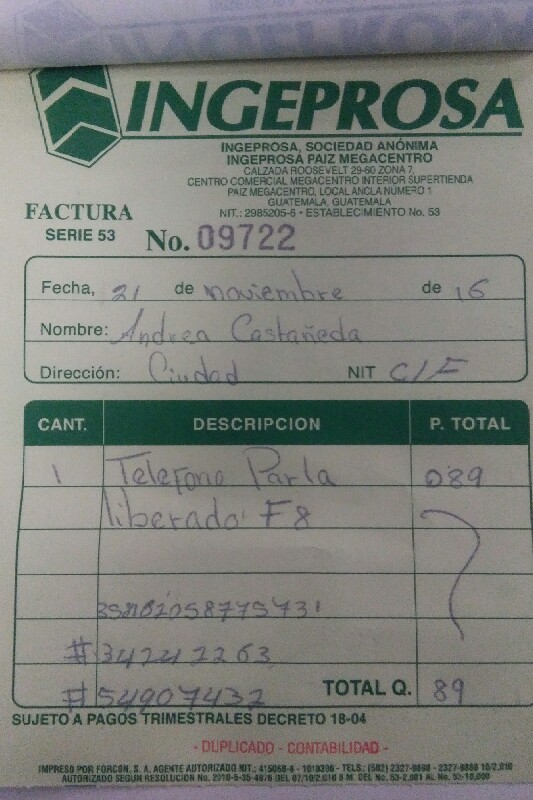 INGEPROSA
INGEPROSA, SOCIEDAD ANÓNIMA
INGEPROSA PAIZ MEGACENTRO
CALZADA ROOSEVELT 29-60 ZONA 7,
CENTRO COMERCIAL MEGACENTRO INTERIOR SUPERTIENDA
PAIZ MEGACENTRO, LOCAL ANCLA NUMERO 1
GUATEMALA, GUATEMALA
NIT.: 2985205-6 • ESTABLECIMIENTO No. 53
FACTURA
SERIE 53
No. 09722
Fecha, 21 de noviembre de 16
Nombre: Andrea Castañeda
Dirección: Ciudad NIT C/F
CANT. DESCRIPCION P. TOTAL
1 Telefono Parla 089
liberado F8
#34242263
#54907432 TOTAL Q. 89
SUJETO A PAGOS TRIMESTRALES DECRETO 18-04
- DUPLICADO - CONTABILIDAD -
IMPRESO POR FORCON, S. A. AGENTE AUTORIZADO NIT.: - TELS.: (502)
AUTORIZADO SEGUN RESOLUCION No.